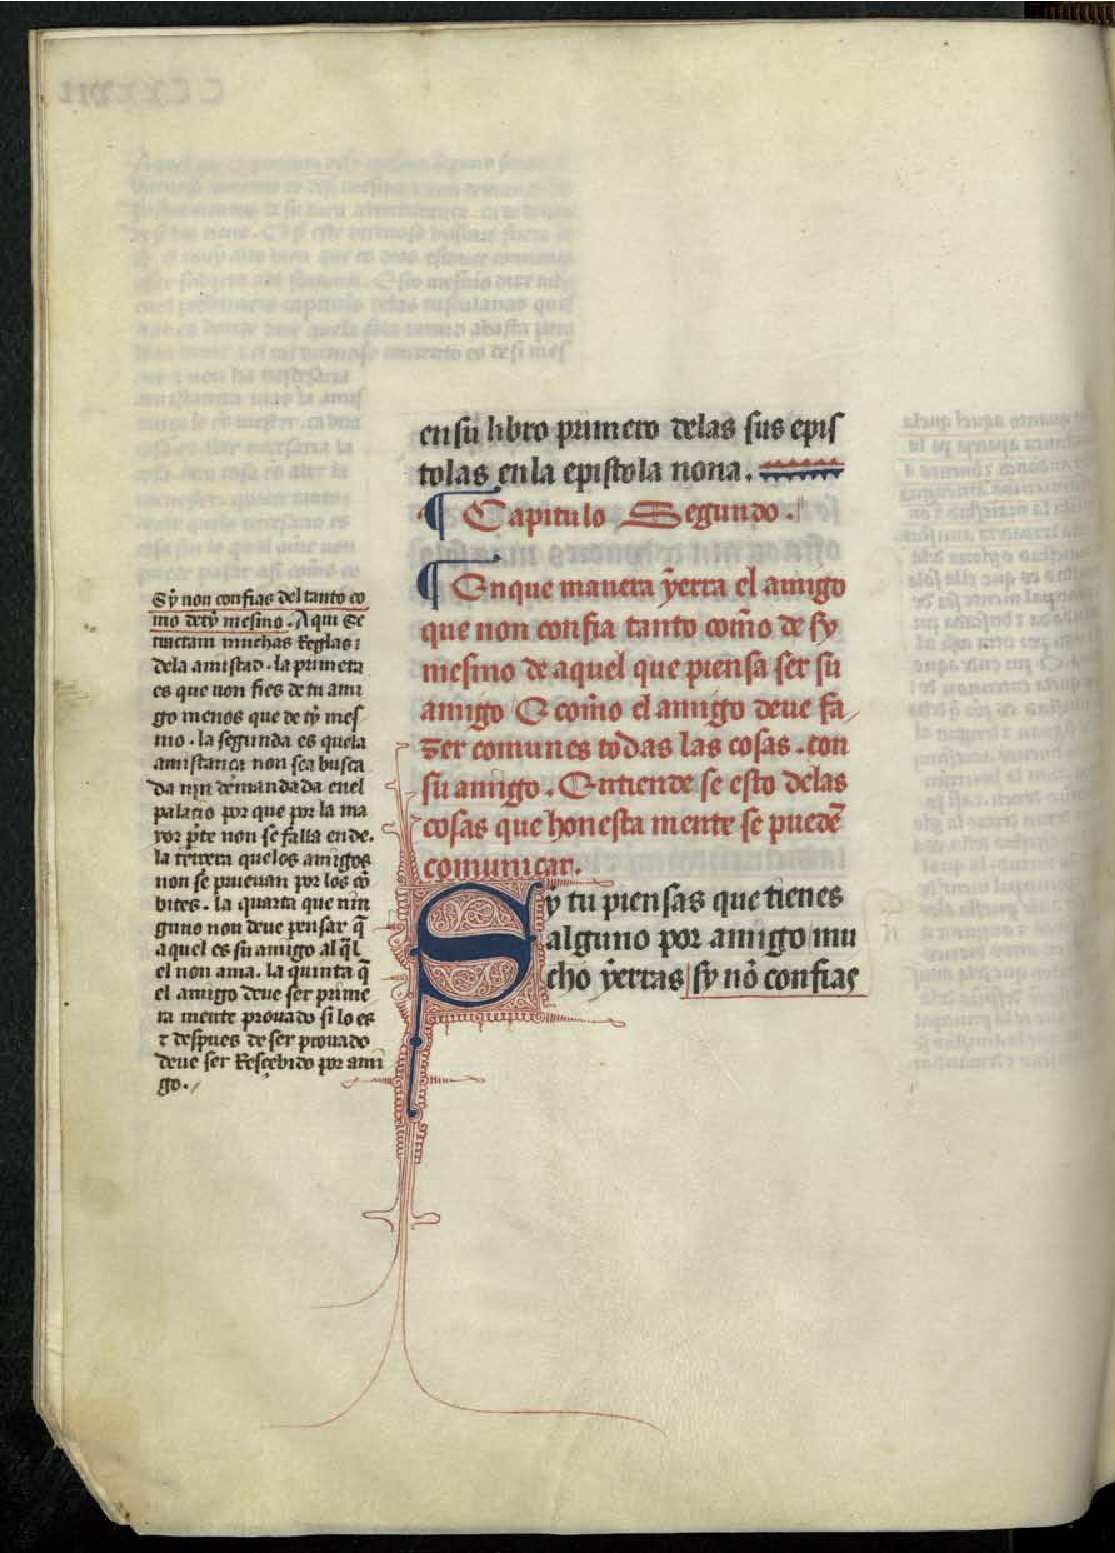 en su libro primero delas sus epis
tolas enla epistola nona.
¶ Capitulo Segundo.
¶ En que manera ẏerra el amigo
que non confia tanto com̃o de sy
mesmo de aquel que piensa ser su
amigo E com̃o el amigo deue fa
zer comunes todas las cosas. con
su amigo. Entiende se esto delas
cosas que honesta mente se puedẽ
comunicar.
Sy tu piensas que tienes
alguno por amigo mu
cho ẏerras sy nõ confias
Sẏ non confias del tanto co
mo detẏ mesmo. Aqui se
tractan muchas Reglas
dela amistad. la primera
es que non fies de tu ami
go menos que de tẏ mes
mo. la segunda es quela
amistança non sea busca
da nin demandada enel
palacio por que por la ma
yor pr̃te non se falla ende.
la tercera quelos amigos
non se prueuan por los cõ
bites. la quarta que nin
guno non deue pensar q̃
aquel es su amigo al q̃l
el non ama. la quinta q̃
el amigo deue ser prime
ra mente prouado si lo es
τ despues de ser prouado
deue ser Resçebido por ami
go.